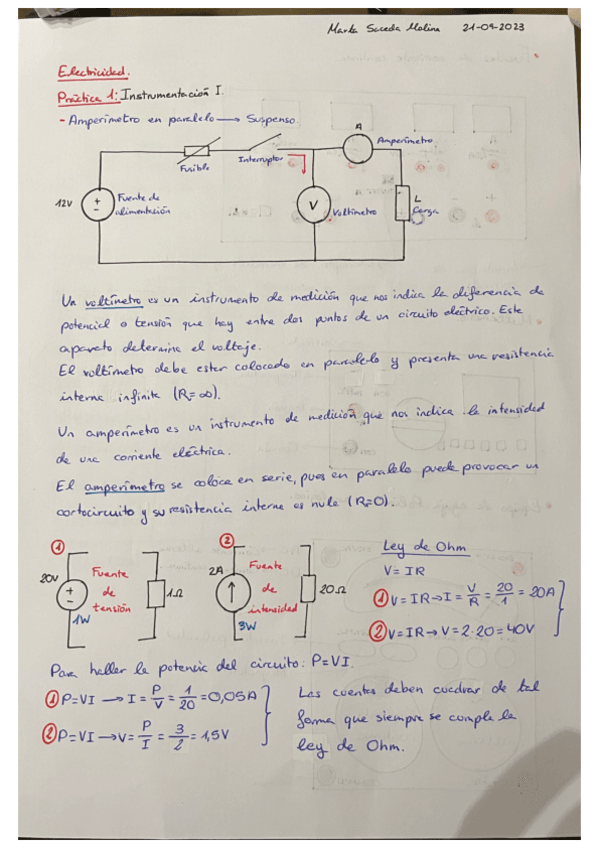 Marta Saceda Molina 21-09-2023
Electricidad.
Práctica 1: Instrumentación I.
- Amperímetro en paralelo → Suspenso.
A
Amperímetro
Interruptor
Fusible
12V
+
-
Fuente de
alimentación
V
Voltímetro
L
Carga
Un voltímetro es un instrumento de medición que nos indica la diferencia de
potencial o tensión que hay entre dos puntos de un circuito eléctrico. Este
aparato determina el voltaje.
El voltímetro debe estar colocado en paralelo y presenta una resistencia
interna infinita (R=∞).
Un amperímetro es un instrumento de medición que nos indica la intensidad
de una corriente eléctrica.
El amperímetro se coloca en serie, pues en paralelo puede provocar un
cortocircuito y su resistencia interna es nula (R=0).
1
20V
+
-
1W
Fuente
de
tensión
1Ω
2
2A
3W
Fuente
de
intensidad
20Ω
Ley de Ohm
V = IR
1 V = IR → I = V/R = 20/1 = 20A
2 V = IR → V = 2·20 = 40V
Para hallar la potencia del circuito: P=VI.
1 P=VI → I = P/V = 1/20 = 0,05A
2 P=VI → V = P/I = 3/2 = 1,5V
Las cuentas deben cuadrar de tal
forma que siempre se cumpla la
ley de Ohm.